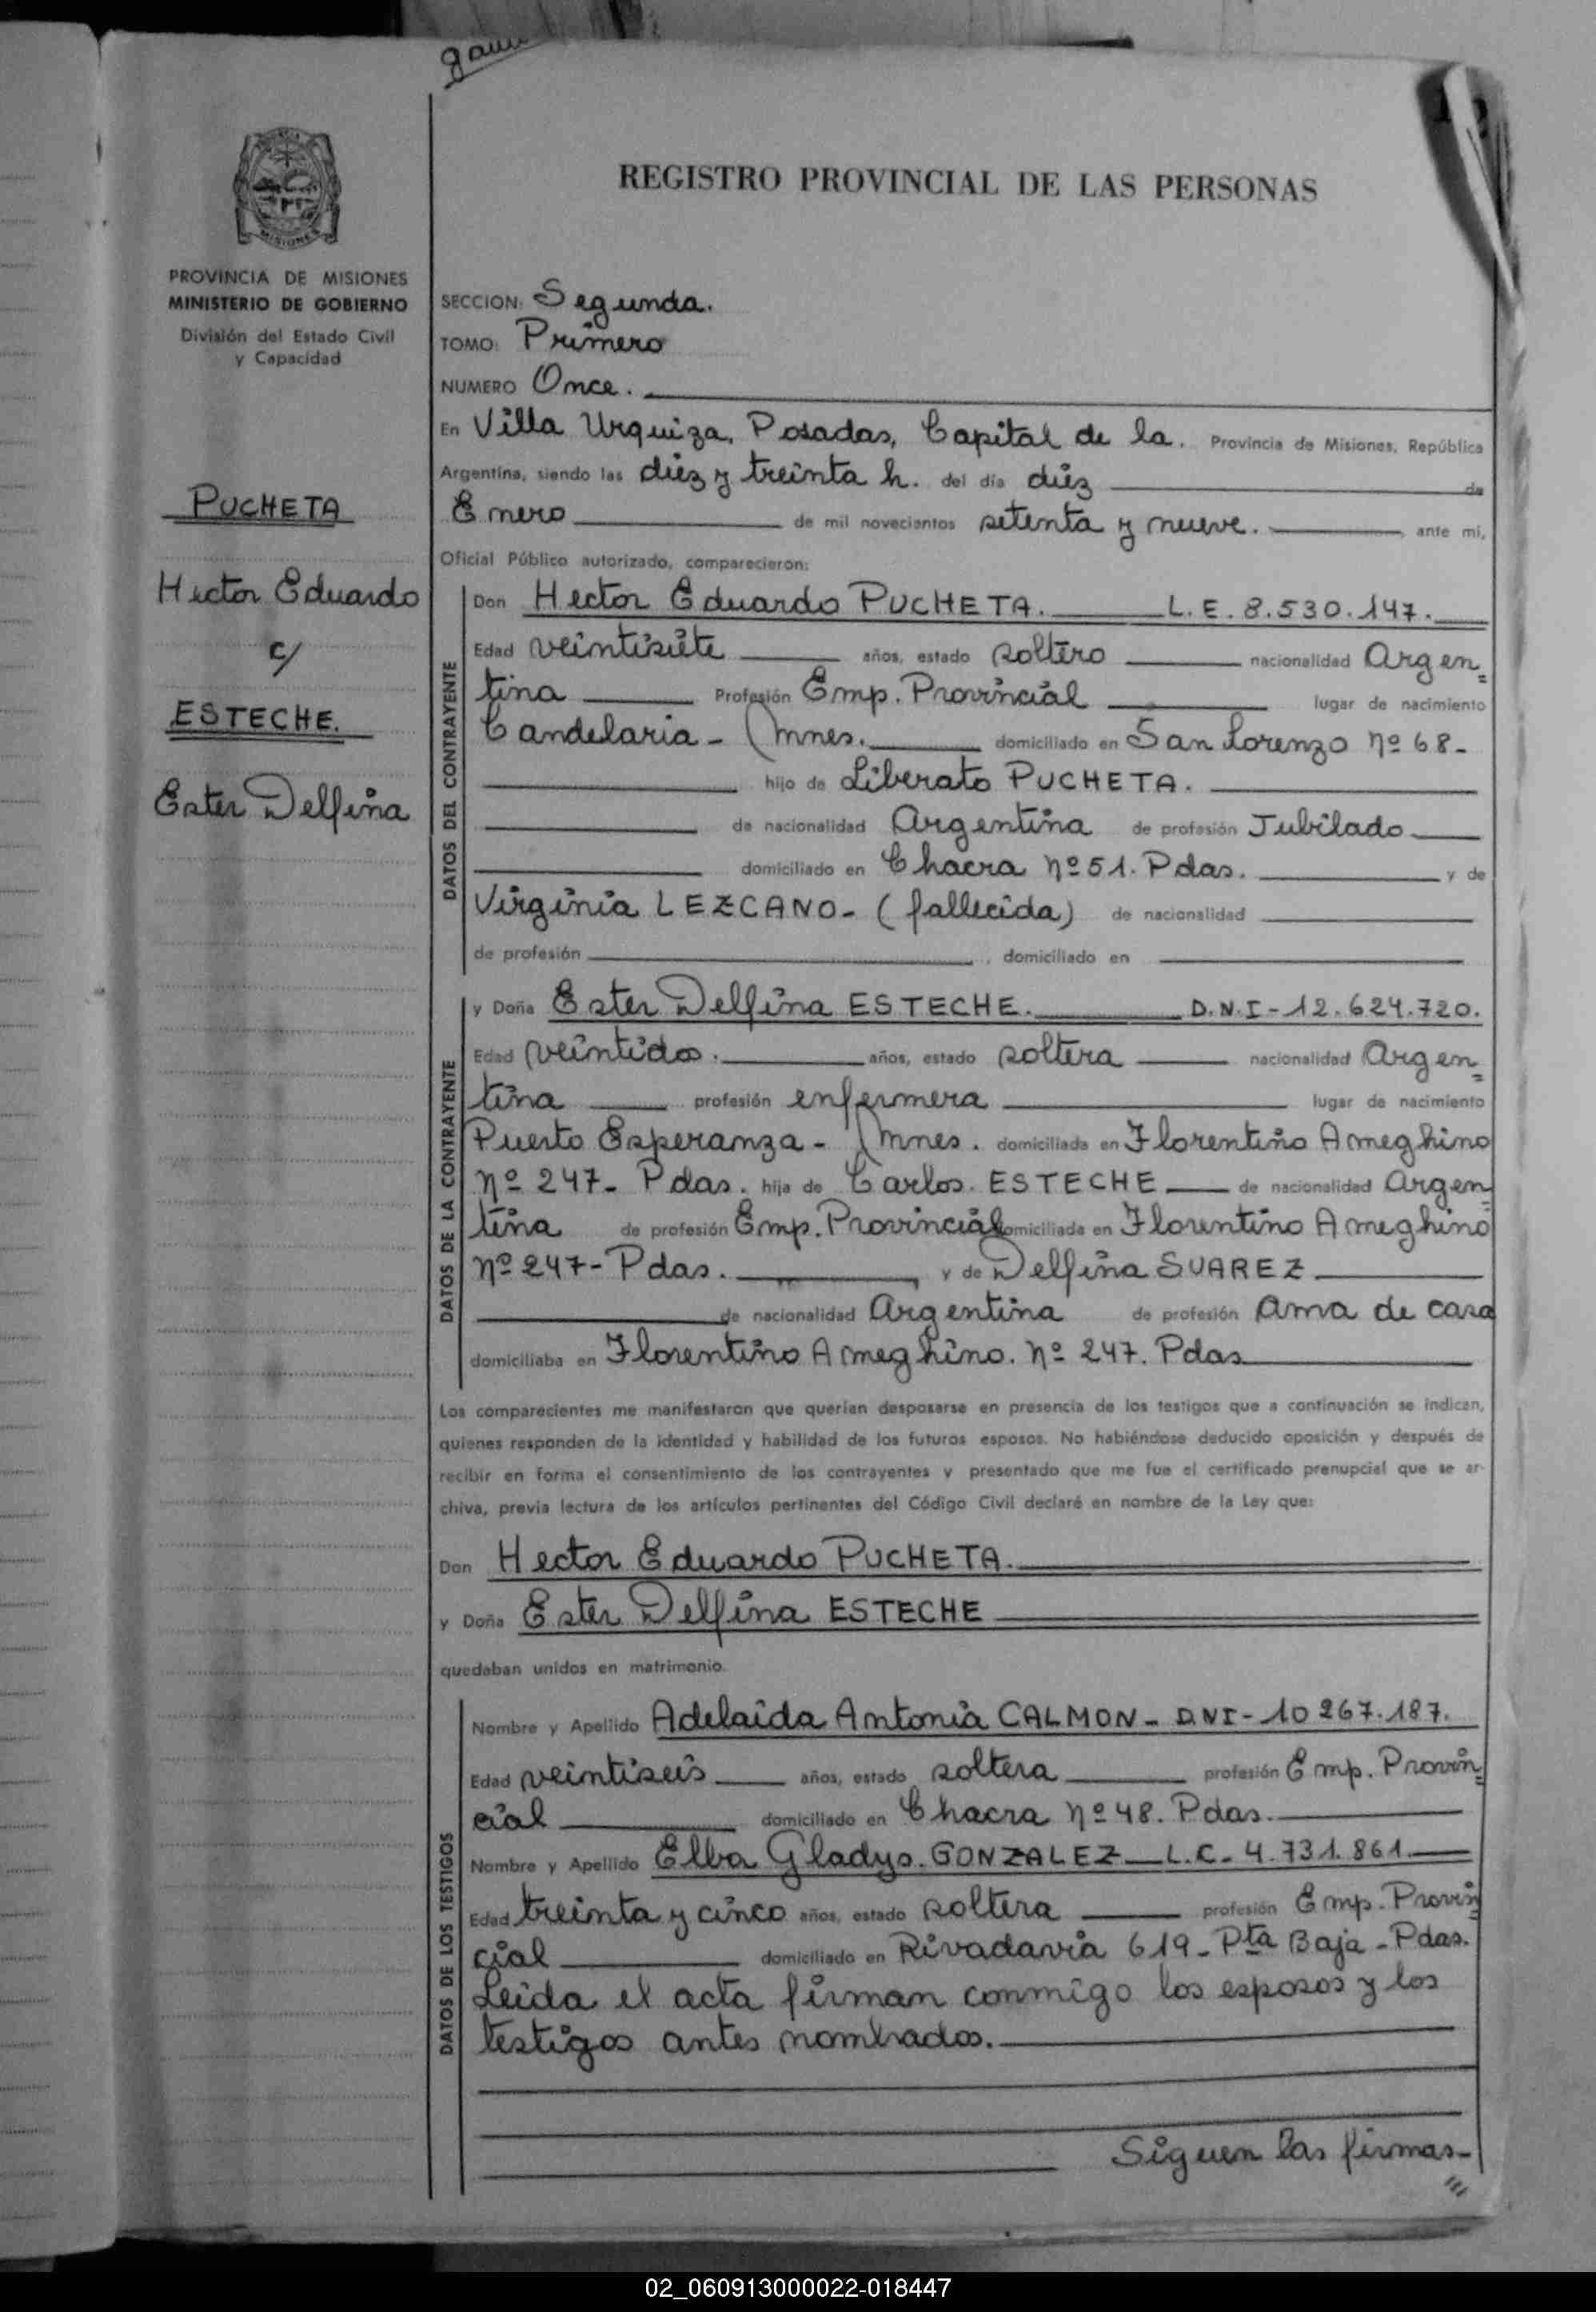 REGISTRO PROVINCIAL DE LAS PERSONAS
MISIONES
PROVINCIA DE MISIONES
MINISTERIO DE GOBIERNO
División del Estado Civil
y Capacidad
PUCHETA
Hector Eduardo
c/
ESTECHE.
Ester Delfina
SECCION: Segunda.
TOMO: Primero
NUMERO Once.
En Villa Urquiza, Posadas, Capital de la. Provincia de Misiones, República
Argentina, siendo las diez y treinta h. del día diez de
Enero de mil novecientos setenta y nueve. ante mí,
Oficial Público autorizado, comparecieron:
DATOS DEL CONTRAYENTE
Don Hector Eduardo PUCHETA. L.E. 8.530.147.
Edad veintisiete años, estado soltero nacionalidad Argen=
tina Profesión Emp. Provincial lugar de nacimiento
Candelaria - (Mnes. domiciliado en San Lorenzo nº 68-
hijo de Liberato PUCHETA.
de nacionalidad Argentina de profesión Jubilado
domiciliado en Chacra nº 51. Pdas. y de
Virginia LEZCANO- (fallecida) de nacionalidad
de profesión , domiciliado en
DATOS DE LA CONTRAYENTE
y Doña Ester Delfina ESTECHE. D.N.I-12.624.720.
Edad veintidos. años, estado soltera nacionalidad Argen=
tina profesión enfermera lugar de nacimiento
Puerto Esperanza- (Mnes. domiciliada en Florentino Ameghino
nº 247- Pdas. hija de Carlos ESTECHE de nacionalidad Argen=
tina de profesión Emp. Provincial domiciliada en Florentino Ameghino
nº 247- Pdas. y de Delfina SUAREZ
de nacionalidad Argentina de profesión Ama de casa
domiciliaba en Florentino Ameghino. nº 247. Pdas
Los comparecientes me manifestaron que querían desposarse en presencia de los testigos que a continuación se indican,
quienes responden de la identidad y habilidad de los futuros esposos. No habiéndose deducido oposición y después de
recibir en forma el consentimiento de los contrayentes y presentado que me fue el certificado prenupcial que se ar-
chiva, previa lectura de los artículos pertinentes del Código Civil declaré en nombre de la Ley que:
Don Hector Eduardo PUCHETA.
y Doña Ester Delfina ESTECHE
quedaban unidos en matrimonio.
DATOS DE LOS TESTIGOS
Nombre y Apellido Adelaida Antonia CALMON- DNI-10 267.187.
Edad veintiseis años, estado soltera profesión Emp. Provin=
cial domiciliado en Chacra nº 48. Pdas.
Nombre y Apellido Elba Gladys. GONZALEZ L.C. 4.731.861
Edad treinta y cinco años, estado soltera profesión Emp. Provin=
cial domiciliado en Rivadavia 619- Pta Baja - Pdas.
Leida el acta firman conmigo los esposos y los
testigos antes nombrados.
Siguen las firmas-
///
02_060913000022-018447